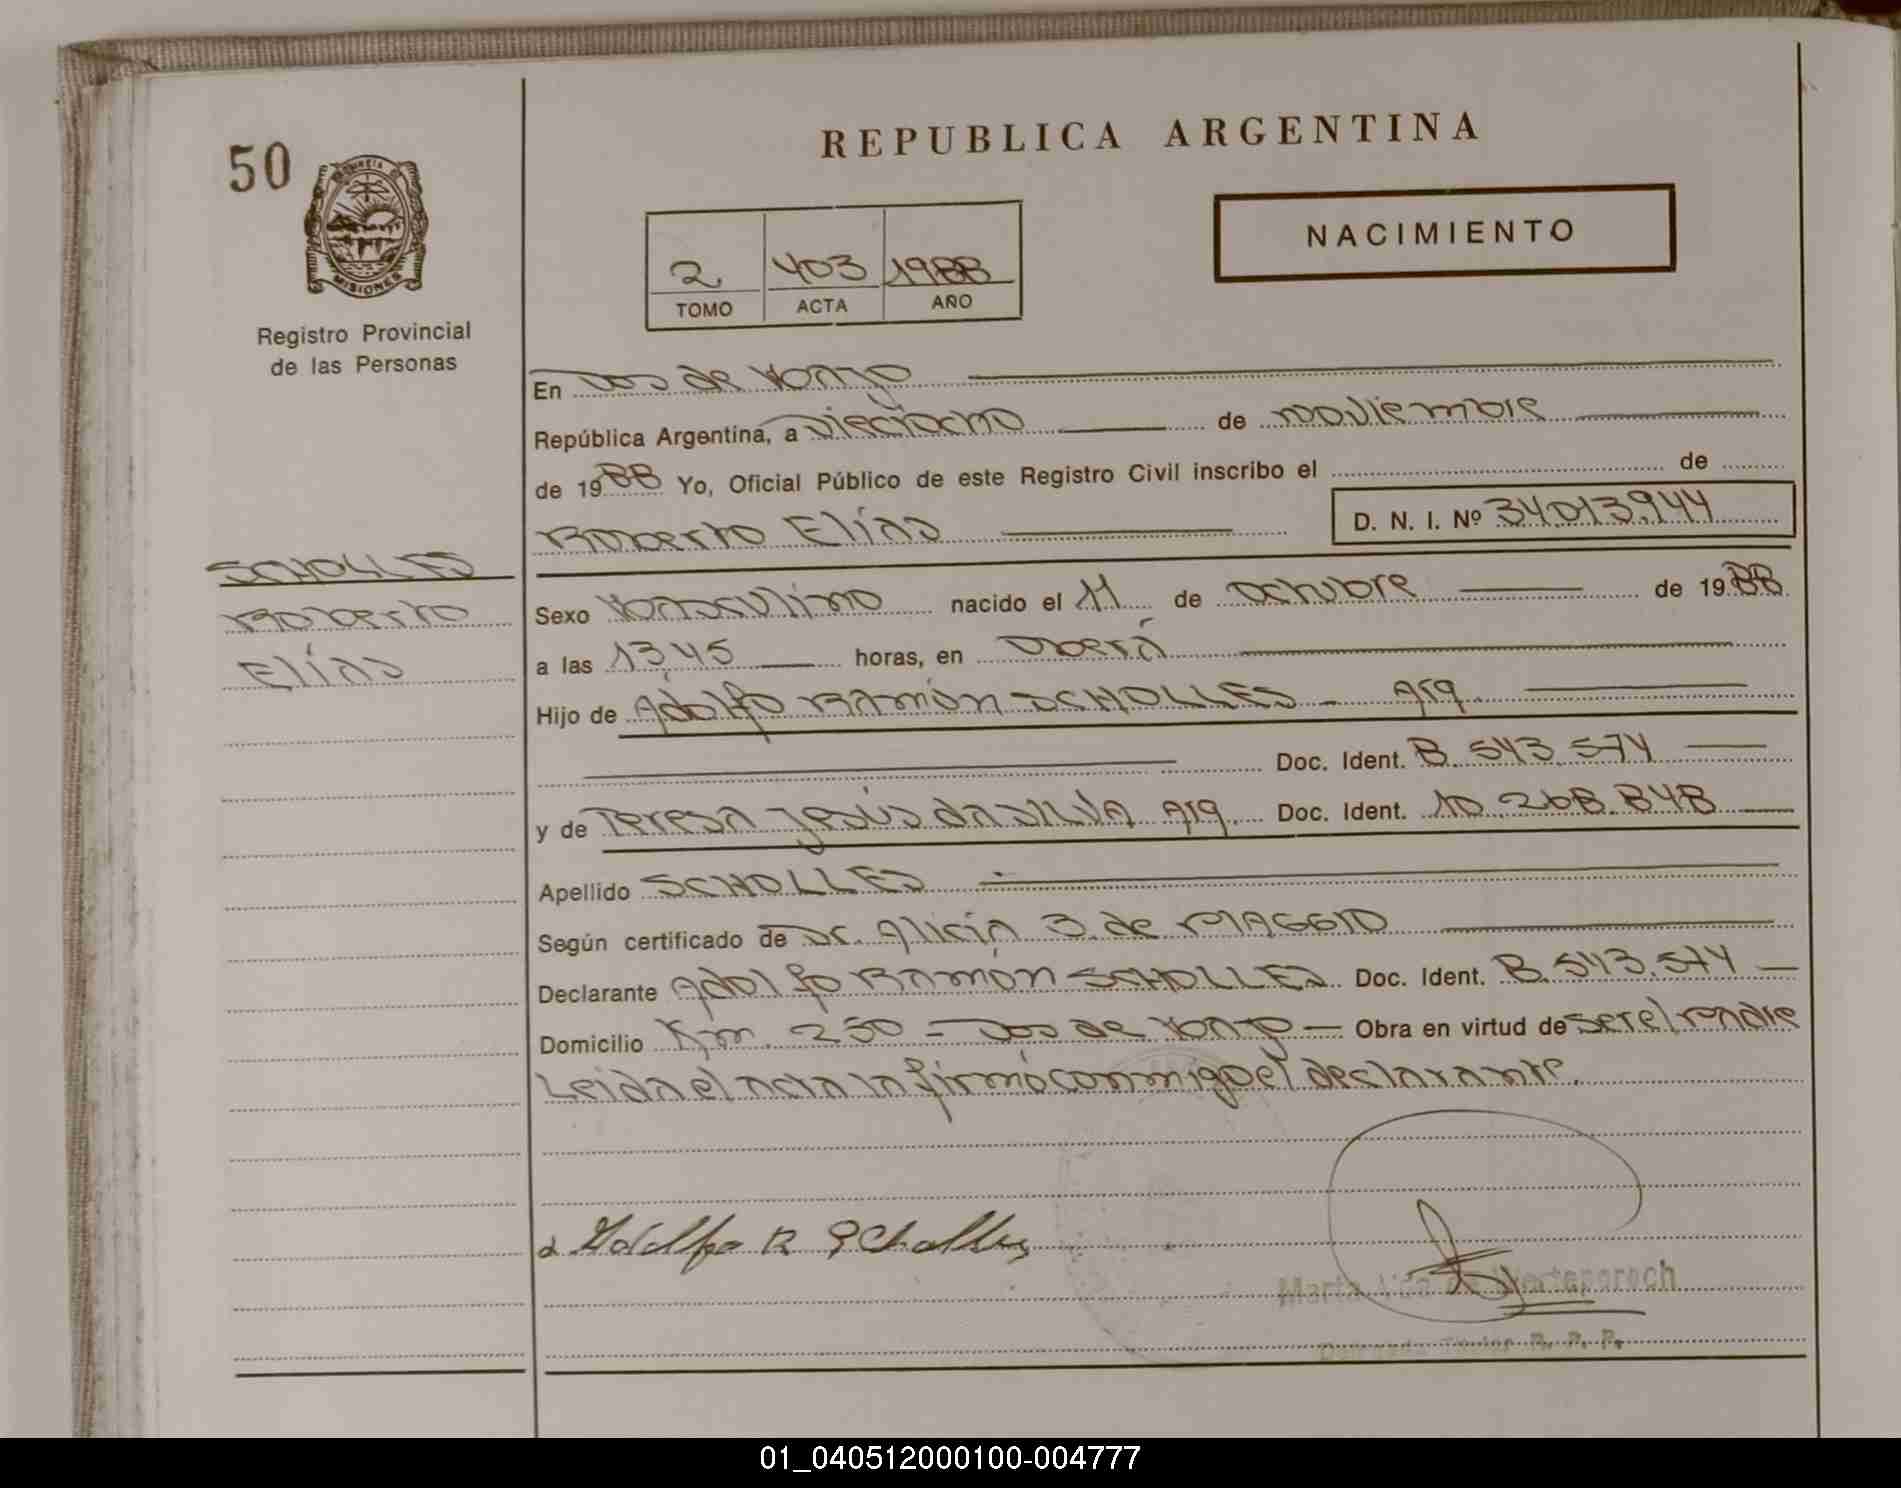 REPUBLICA ARGENTINA
50
PROVINCIA DE MISIONES
NACIMIENTO
2 403 1988
TOMO ACTA AÑO
Registro Provincial
de las Personas
En Dos de Mayo
República Argentina, a Dieciocho de noviembre
de 1988 Yo, Oficial Público de este Registro Civil inscribo el de
Roberto Elías D. N. I. Nº 34.013.944
SCHOLLES
Roberto
Elías
Sexo Masculino nacido el 11 de octubre de 1988
a las 13,45 horas, en Oberá
Hijo de Adolfo Ramón SCHOLLES - Arg.
Doc. Ident. 8.543.574
y de Teresa Jesús da SILVA Arg. Doc. Ident. 10.268.848
Apellido SCHOLLES
Según certificado de Dr. Alicia 3. de MAGGIO
Declarante Adolfo Ramón SCHOLLES Doc. Ident. 8.543.574
Domicilio Km. 250 - Dos de Mayo - Obra en virtud de ser el padre
Leida el acta la firmó conmigo el declarante.
Adolfo R Scholles
Marta
R. P. P.
01_040512000100-004777